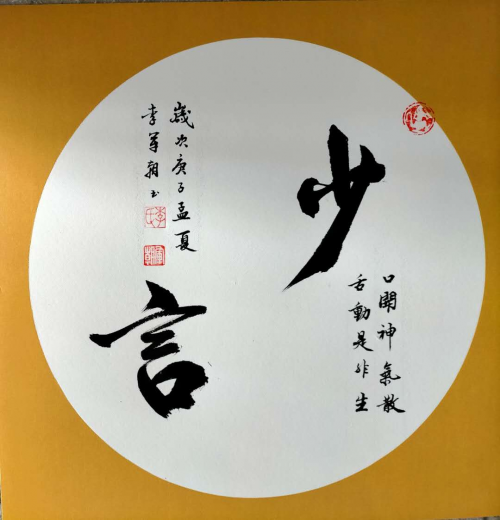 少
口開神氣散
舌動是非生
言
歲次庚子孟夏
李軍朝書